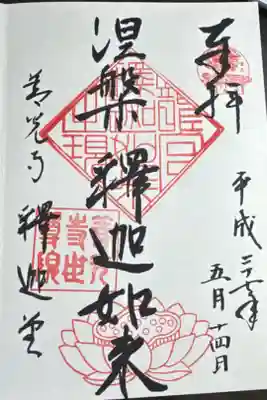 奉拝
平成二十七年
五月十四日
涅槃釋迦如来
善光寺釋迦堂